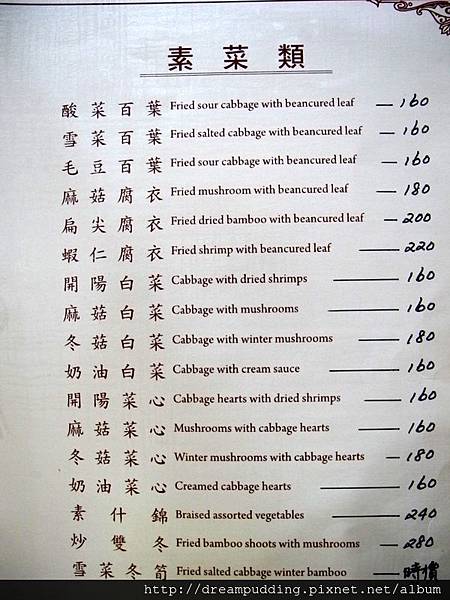 素菜類
酸菜百葉 Fried sour cabbage with beancured leaf 160
雪菜百葉 Fried salted cabbage with beancured leaf 160
毛豆百葉 Fried sour cabbage with beancured leaf 160
麻菇腐衣 Fried mushroom with beancured leaf 180
扁尖腐衣 Fried dried bamboo with beancured leaf 200
蝦仁腐衣 Fried shrimp with beancured leaf 220
開陽白菜 Cabbage with dried shrimps 160
麻菇白菜 Cabbage with mushrooms 160
冬菇白菜 Cabbage with winter mushrooms 180
奶油白菜 Cabbage with cream sauce 160
開陽菜心 Cabbage hearts with dried shrimps 160
麻菇菜心 Mushrooms with cabbage hearts 160
冬菇菜心 Winter mushrooms with cabbage hearts 180
奶油菜心 Creamed cabbage hearts 160
素什錦 Braised assorted vegetables 240
炒雙冬 Fried bamboo shoots with mushrooms 280
雪菜冬筍 Fried salted cabbage winter bamboo 時價
http://dreampudding.pixnet.net/album